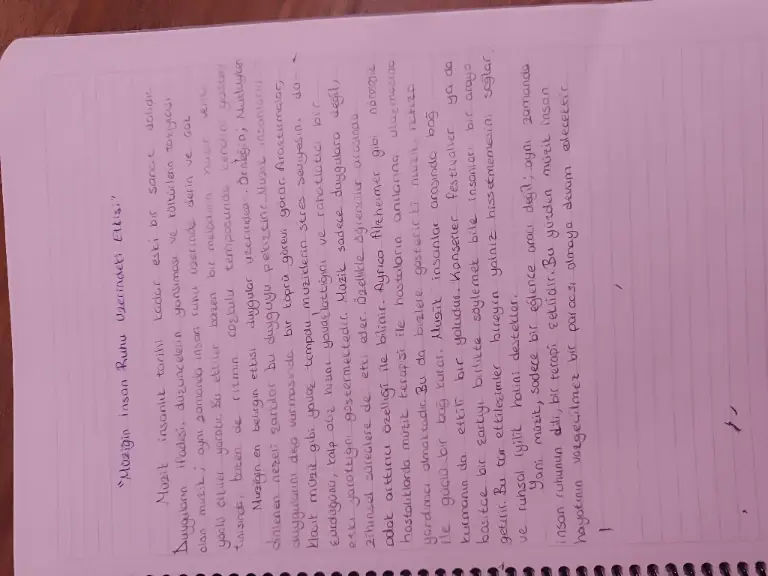 "Müziğin İnsan Ruhu Üzerindeki Etkisi"
Müzik insanlık tarihi kadar eski bir sanat dalıdır.
Duyguların ifadesi, düşüncelerin yansıması ve kültürlerin taşıyıcısı
olan müzik; aynı zamanda insan ruhu üzerinde derin ve çok
yönlü etkiler yaratır. Bu etkiler bazen bir melodinin huzur veren
tınısında, bazen de ritmin coşkulu temposunda kendini gösterir.
Müziğin en belirgin etkisi duygular üzerinedir. Örneğin; Mutluyken
dinlenen neşeli şarkılar bu duyguyu pekiştirir. Müzik insanların
duygularını dışa vurmasında bir köprü görevi görür. Araştırmalar,
klasik müzik gibi yavaş tempolu müziklerin stres seviyesini
düşürdüğünü, kalp atış hızını yavaşlattığını ve rahatlatıcı bir
etki yarattığını göstermektedir. Müzik sadece duygulara değil,
zihinsel süreçlere de etki eder. Özellikle öğrenciler arasında
odak arttırıcı özelliği ile bilinir. Ayrıca Alzheimer gibi
hastalıklarda müzik terapisi ile hastaların anılarına ulaşmasında
yardımcı olmaktadır. Bu da bizlere gösterir ki müzik hafıza
ile güçlü bir bağ kurar. Müzik insanlar arasında bağ
kurmanın da etkili bir yoludur. Konserler festivaller ya da
basitçe bir şarkıyı birlikte söylemek bile insanları bir araya
getirir. Bu tür etkileşimler bireyin yalnız hissetmemesini sağlar
ve ruhsal iyilik halini destekler.
Yani müzik, sadece bir eğlence aracı değil; aynı zamanda
insan ruhunun dili, bir terapi şeklidir. Bu yüzden müzik insan
hayatının vazgeçilmez bir parçası olmaya devam edecektir.